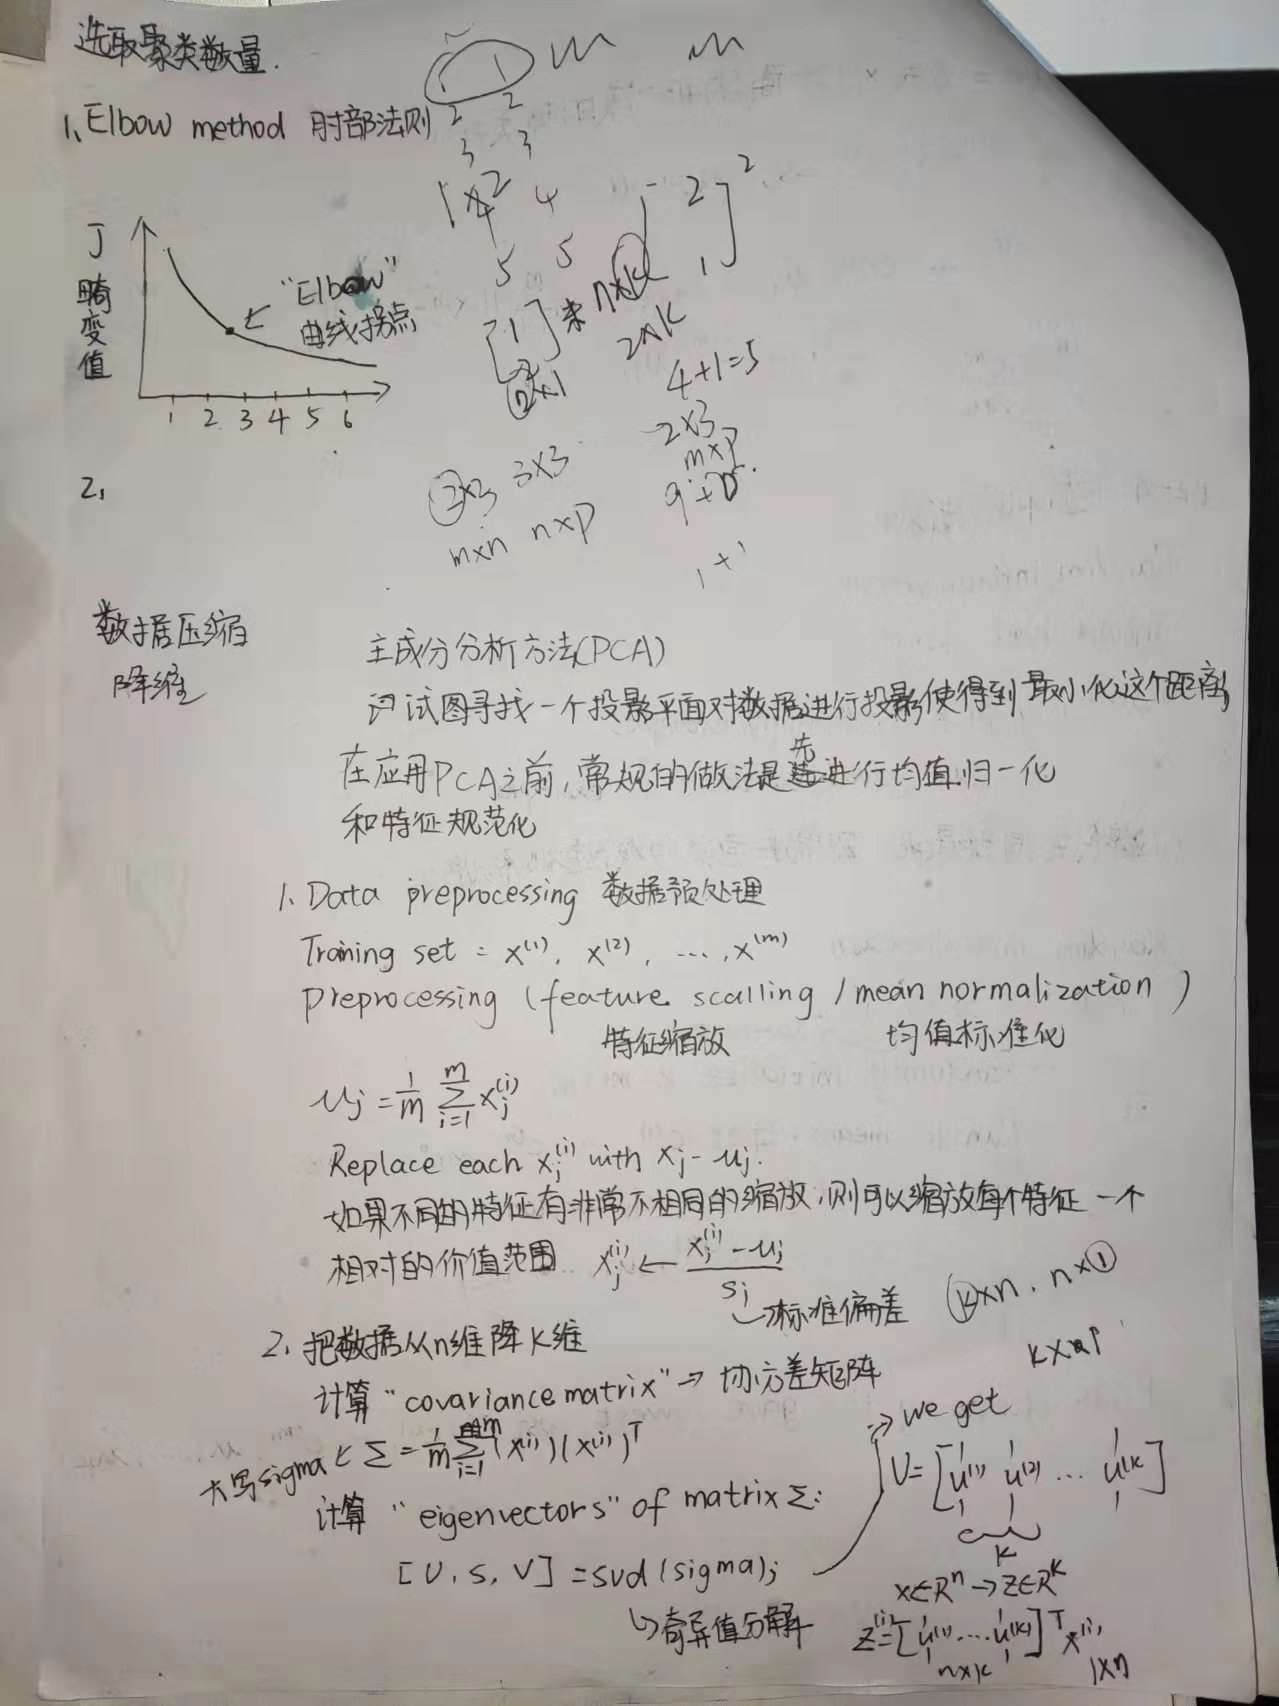 选取聚类数量.
1、Elbow method 肘部法则
J
畸变值
"Elbow"
曲线拐点
1 2 3 4 5 6
1 1
2 2
3 3
4
5 5
[1
2] 2×1
n×k
2×k
[2
1]²
4+1=5
2×3 3×3
2×3
m×n n×p
m×p
1+1
2、
数据压缩
降维
主成分分析方法(PCA)
试图寻找一个投影平面对数据进行投影使得到最小化这个距离
在应用PCA之前,常规的做法是先进行均值归一化
和特征规范化
1、Data preprocessing 数据预处理
Training set = x⁽¹⁾, x⁽²⁾, ..., x⁽ᵐ⁾
preprocessing (feature scalling / mean normalization)
特征缩放 均值标准化
uj = 1/m Σ(i=1→m) xj⁽ⁱ⁾
Replace each xj⁽ⁱ⁾ with xj - uj.
如果不同的特征有非常不相同的缩放,则可以缩放每个特征一个
相对的价值范围 xj⁽ⁱ⁾ ← (xj⁽ⁱ⁾ - uj) / sj
→标准偏差
k×n . n×1
2、把数据从n维降k维
计算 "covariance matrix" → 协方差矩阵
大写sigma ← Σ = 1/m Σ(i=1→m) (x⁽ⁱ⁾)(x⁽ⁱ⁾)ᵀ
计算 "eigenvectors" of matrix Σ:
[U, S, V] = svd(sigma);
↳奇异值分解
→ we get
U = [u⁽¹⁾ u⁽²⁾ ... u⁽ᵏ⁾]
k
x∈Rⁿ → z∈Rᵏ
z⁽ⁱ⁾=[u⁽¹⁾ .... u⁽ᵏ⁾]ᵀ x⁽ⁱ⁾
n×k 1×n